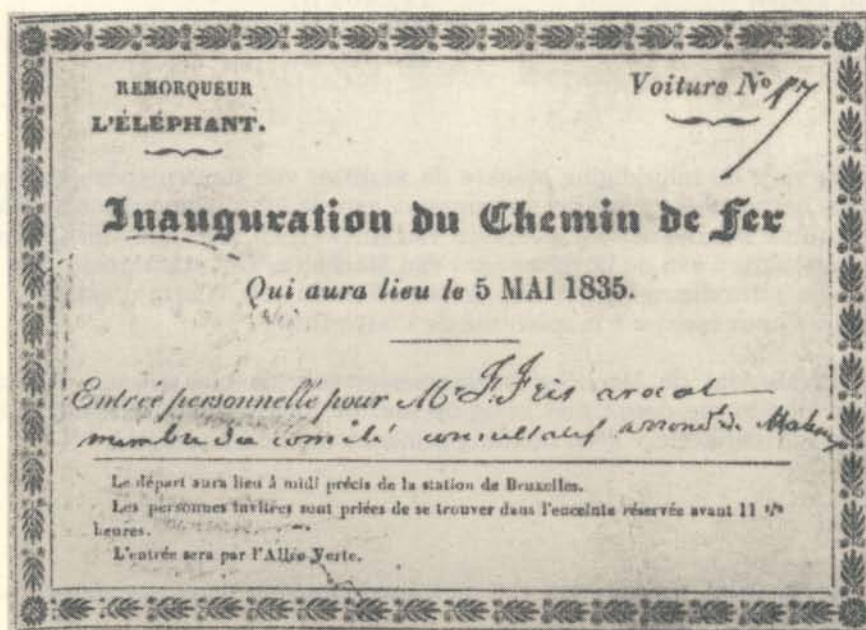 REMORQUEUR
L'ÉLÉPHANT.
Voiture Nº 17
Inauguration du Chemin de Fer
Qui aura lieu le 5 MAI 1835.
Entrée personnelle pour Mr F. Fris avocat
membre du comité consultatif arrondt. de Malines
Le départ aura lieu à midi précis de la station de Bruxelles.
Les personnes invitées sont priées de se trouver dans l'enceinte réservée avant 11 1/2
heures.
L'entrée sera par l'Allée Verte.